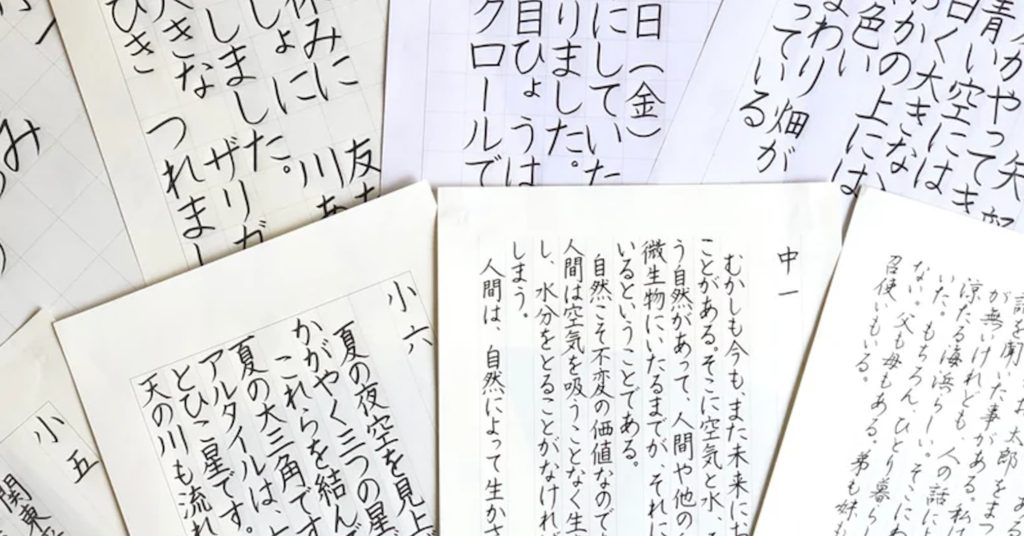 休みに 友
しょに 川
しました。 ザリガ
大きな つれまし
ひき
日(金)
にしていた
りました。
目ひょうは
クロールで
がやってき
青い空には
白く大きな
かの上には
色い
まわり畑が
っている
小五
関東
小六
夏の夜空を見上
かがやく三つの星
これらを結んで
夏の大三角です
アルタイルは、
とひこ星です。
天の川も流れ
中一
むかしも今も、また未来にお
ことがある。そこに空気と水、
う自然があって、人間や他の
微生物にいたるまでが、それに
いるということである。
自然こそ不変の価値なので
人間は空気を吸うことなく生
し、水分をとることがなければ
しまう。
人間は、自然によって生かさ
太郎
が無いけれども、人の話によ
いた。もちろん、ひとり暮らし
ない。父も母もある。弟も妹も
召使いもいる。